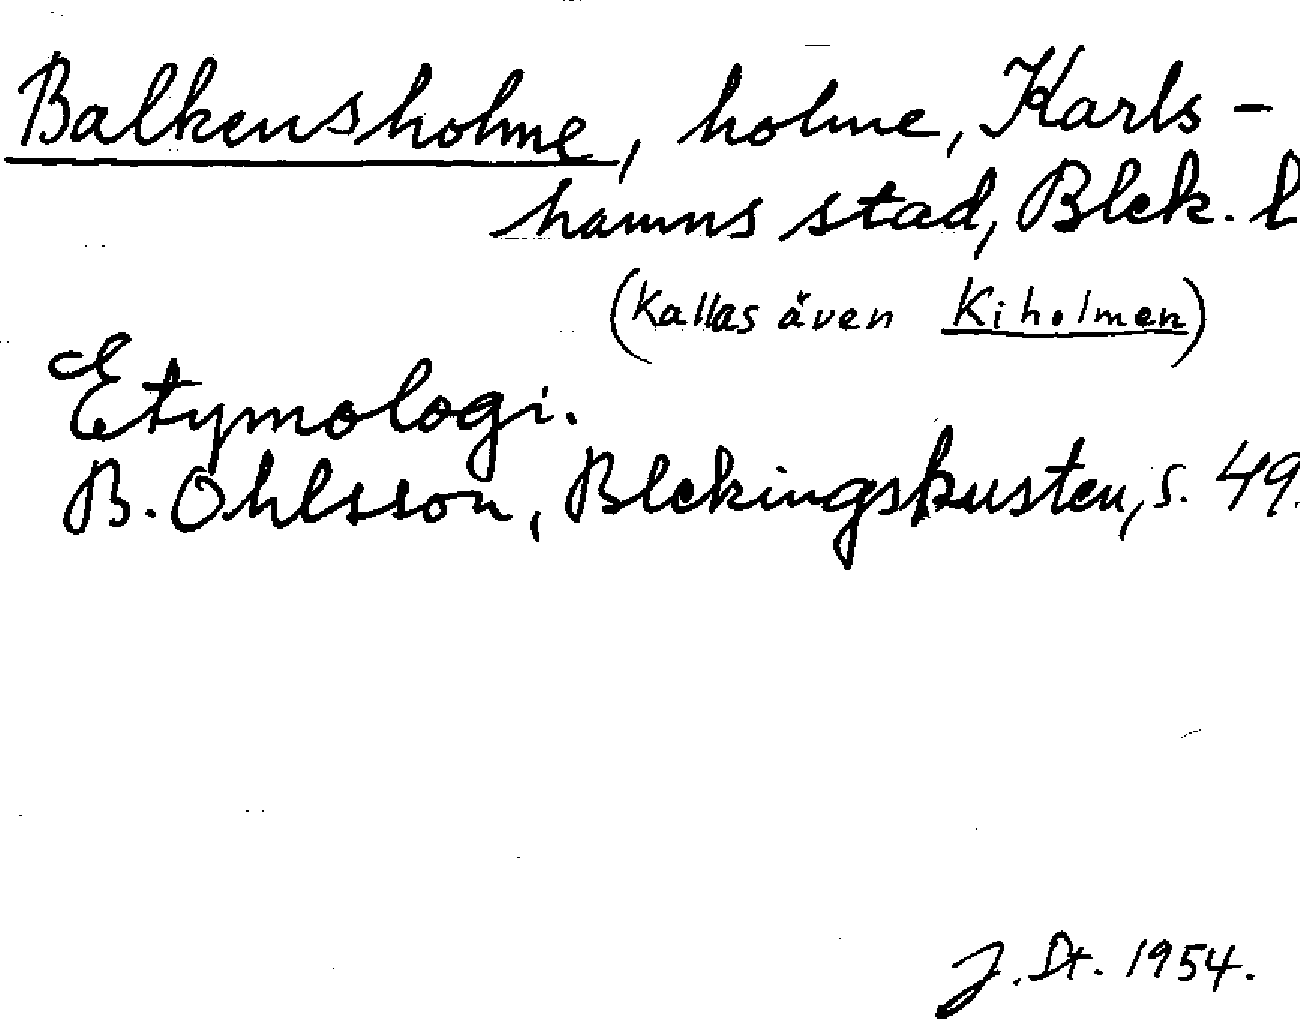 Balkensholme, holme, Karls-
hamns stad, Blek. l
(Kallas även Kiholmen)
Etymologi.
B. Ohlsson, Blekingskusten, s. 49.
J. St. 1954.